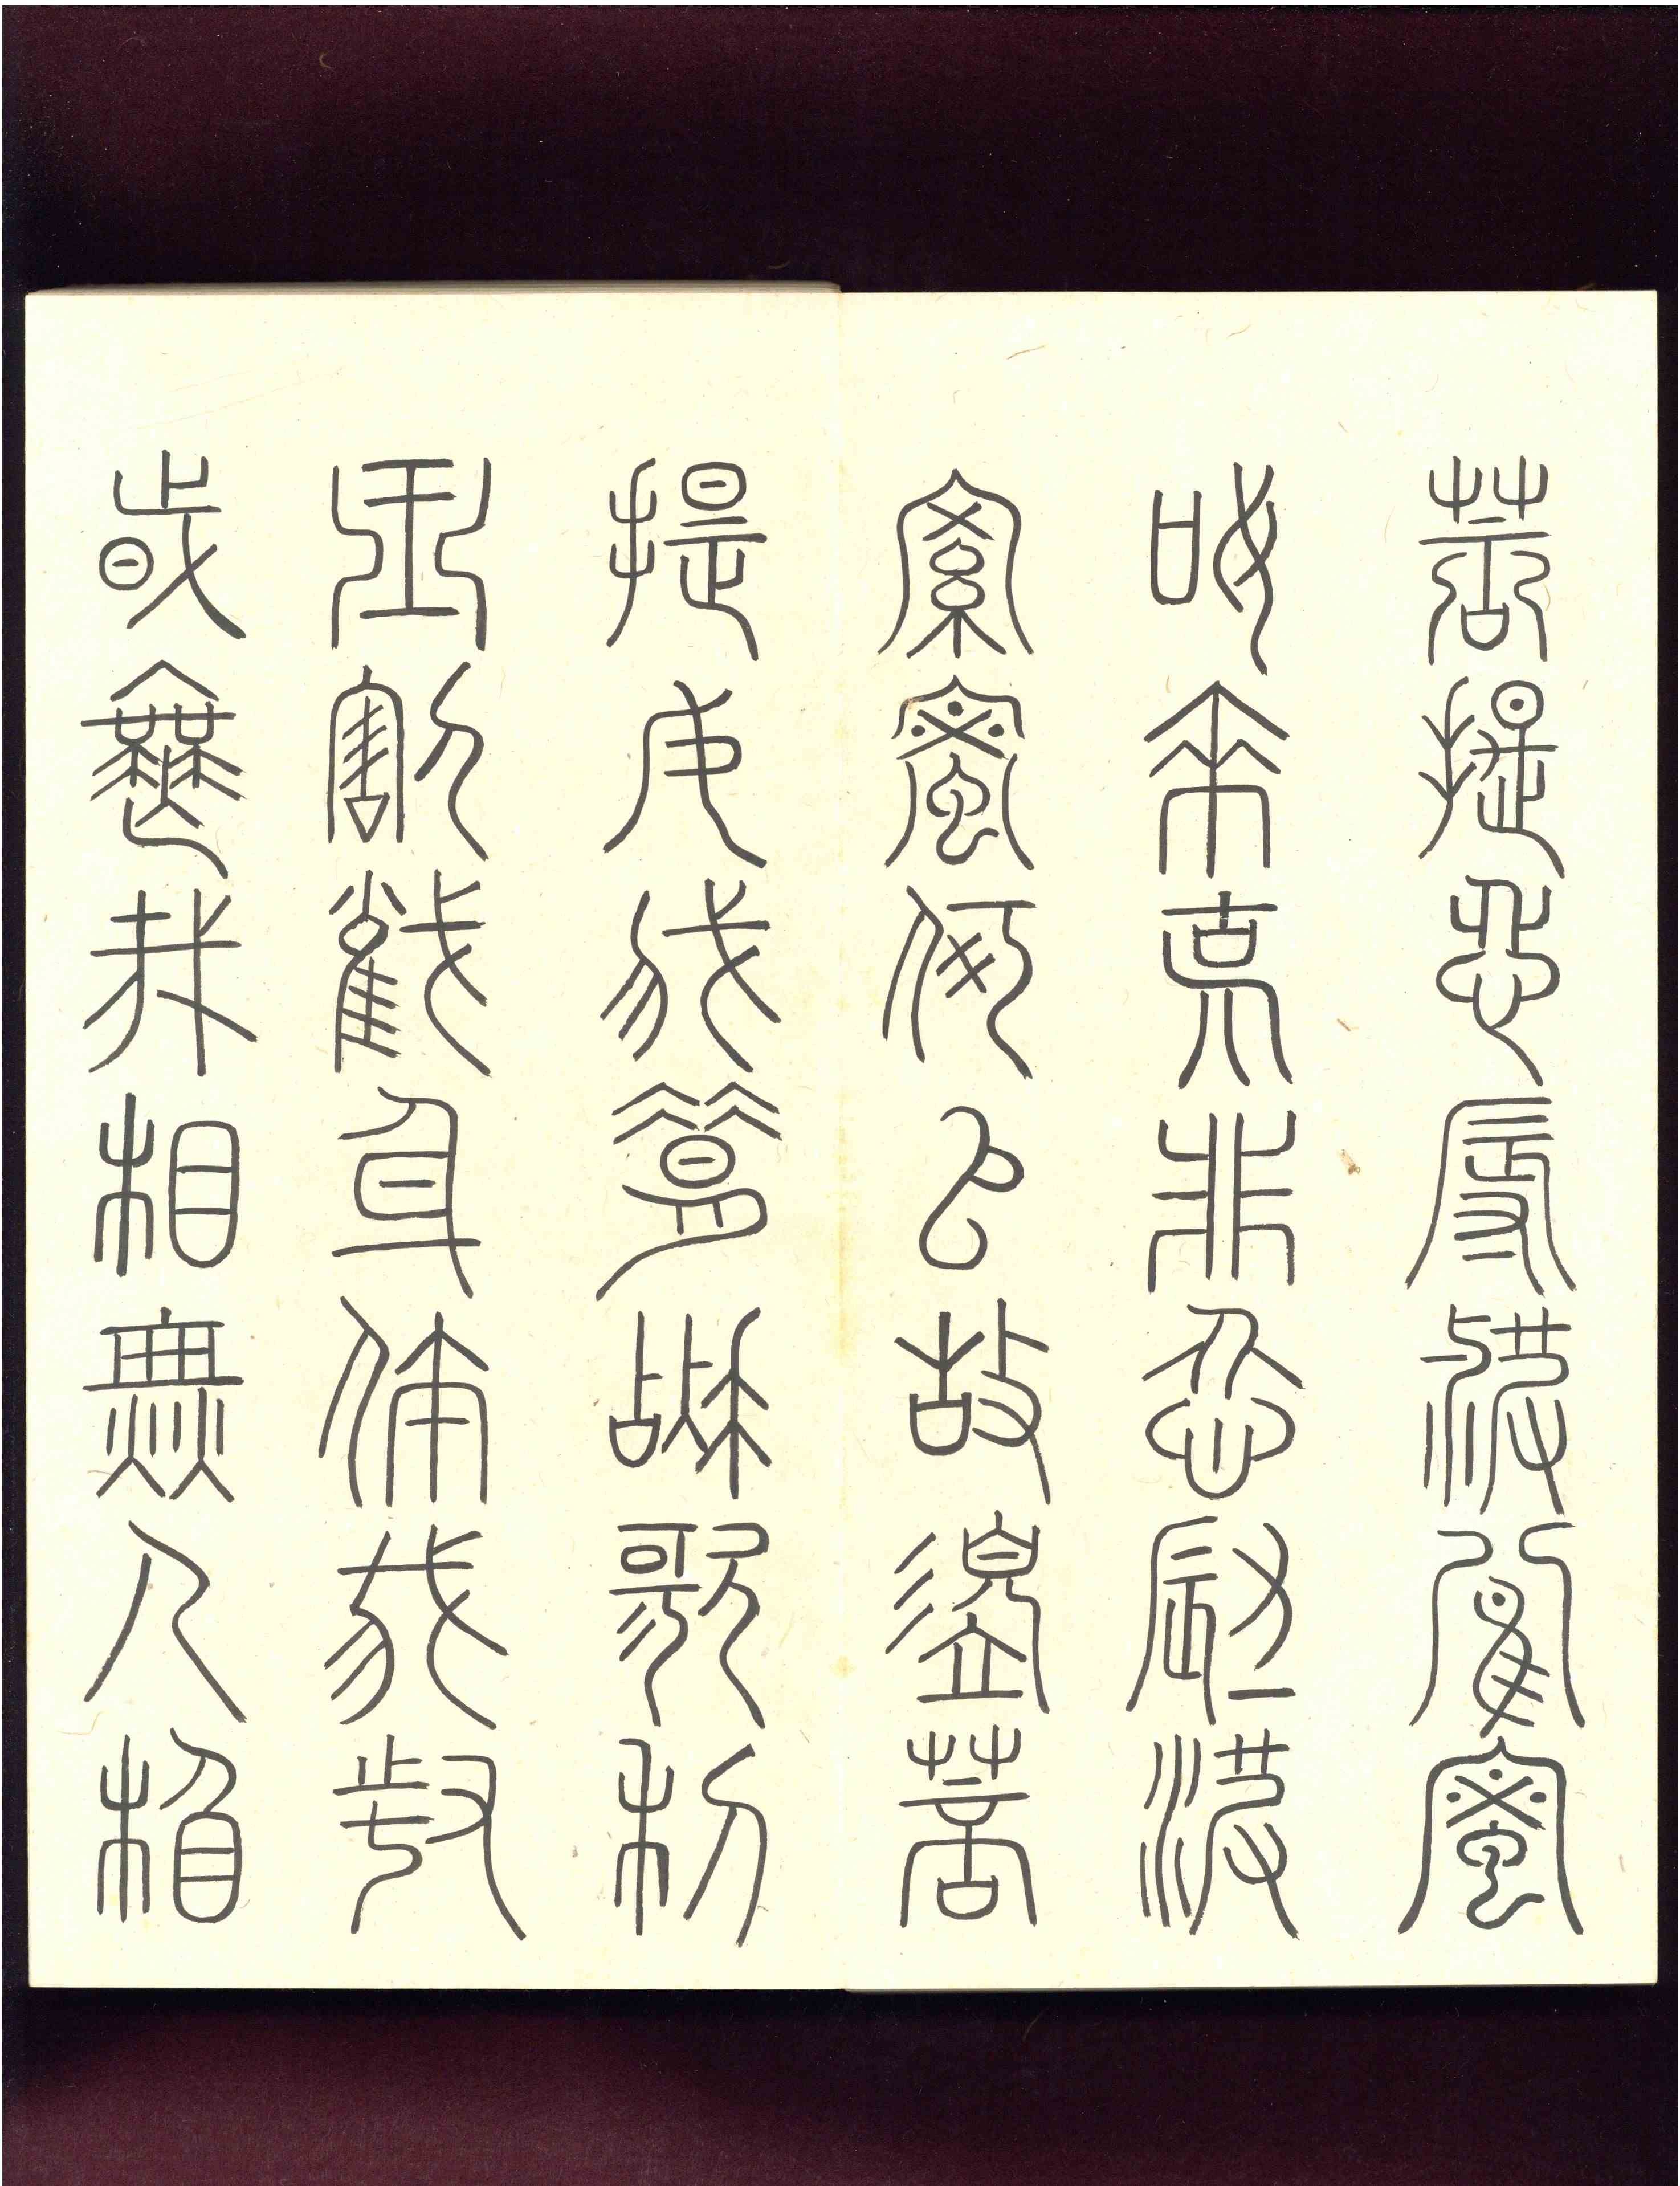 菩提忍辱波羅蜜
如來說非忍辱波
羅蜜何以故須菩
提如我昔為歌利
王割截身體我於
時無我相無人相